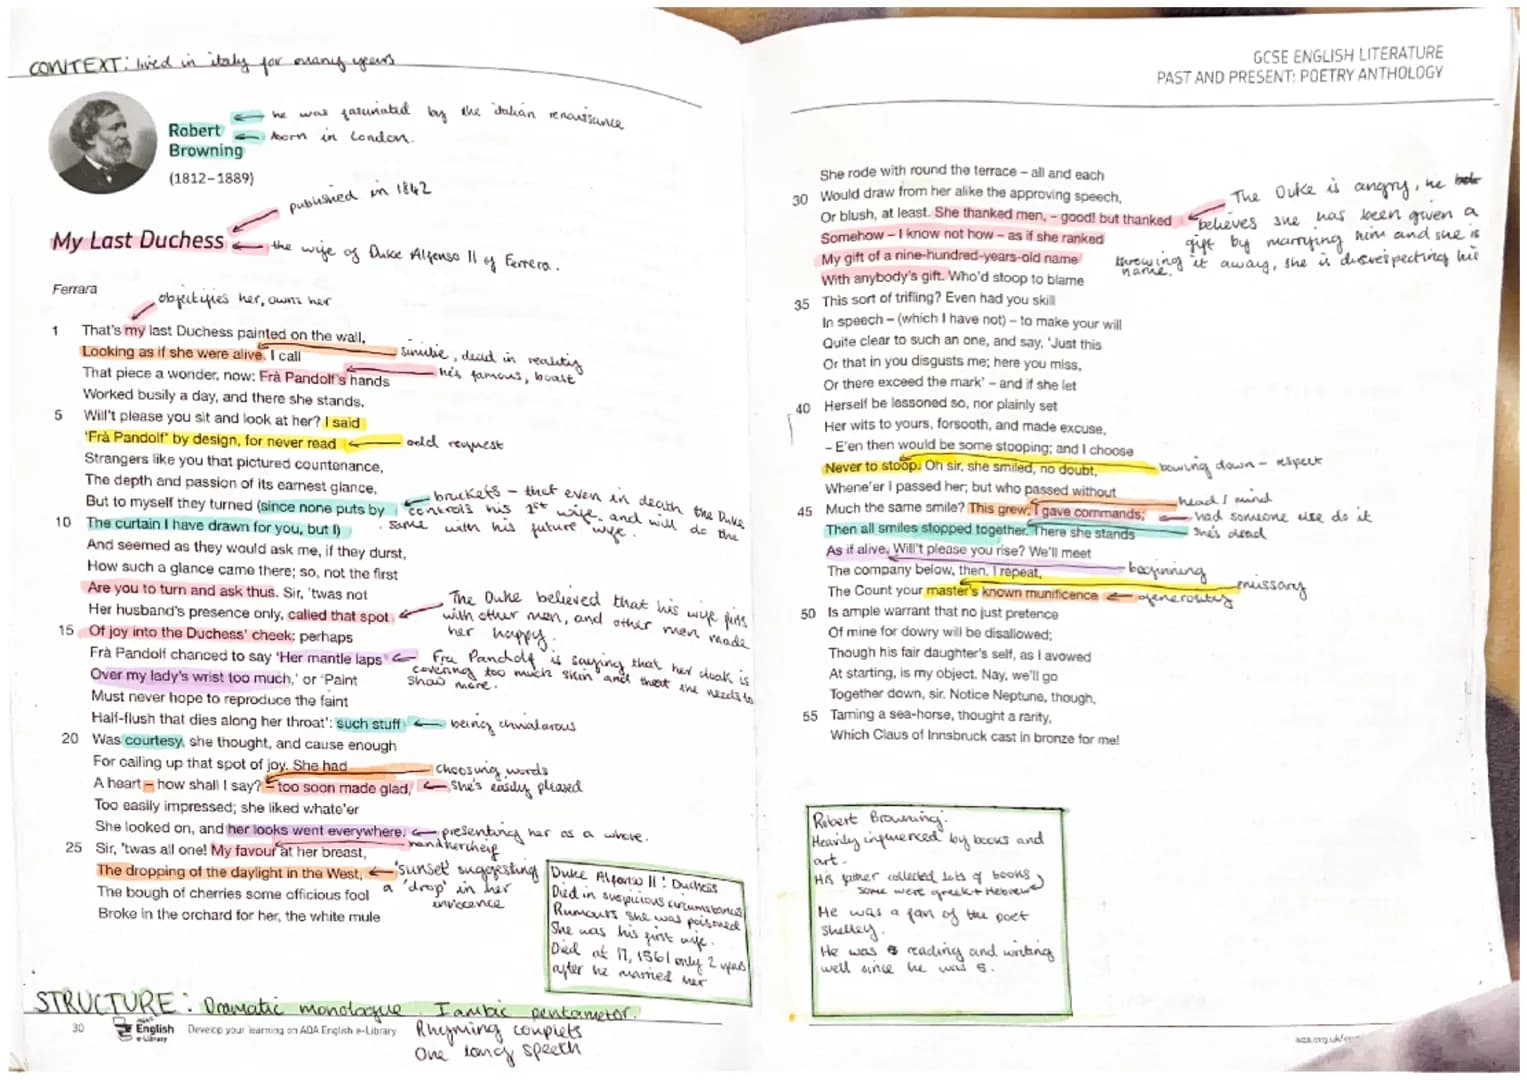 CONTEXT: lived in italy for many years
Robert
Browning
(1812–1889)
he was fascinated by the italian renaissance
born in London.
published in 1842
My Last Duchess
the wife of Duke Alfonso II of Ferrera.
Ferrara
objectifies her, owns her
1 That's my last Duchess painted on the wall,
Looking as if she were alive. I call
simile, dead in reality
That piece a wonder, now: Frà Pandolf's hands
he's famous, boast
Worked busily a day, and there she stands.
5 Will't please you sit and look at her? I said
'Frà Pandolf' by design, for never read
odd request
Strangers like you that pictured countenance,
The depth and passion of its earnest glance,
But to myself they turned (since none puts by
10 The curtain I have drawn for you, but I)
brackets – that even in death the Duke
controls his 1st wife, and will do the
same with his future wife.
And seemed as they would ask me, if they durst,
How such a glance came there; so, not the first
Are you to turn and ask thus. Sir, 'twas not
Her husband's presence only, called that spot
15 Of joy into the Duchess' cheek: perhaps
The Duke believed that his wife flirts
with other men, and other men made
her happy.
Frà Pandolf chanced to say 'Her mantle laps
Over my lady's wrist too much,' or 'Paint
Fra Pandolf is saying that her cloak is
covering too much skin and that she needs to
show more.
Must never hope to reproduce the faint
Half-flush that dies along her throat': such stuff
being chivalarous
20 Was courtesy, she thought, and cause enough
For calling up that spot of joy. She had
choosing words
A heart – how shall I say? – too soon made glad,
she's easily pleased
Too easily impressed; she liked whate'er
She looked on, and her looks went everywhere.
presenting her as a whore.
25 Sir, 'twas all one! My favour at her breast,
handkercheif
The dropping of the daylight in the West,
'sunset' suggesting
a 'drop' in her
innocence
The bough of cherries some officious fool
Broke in the orchard for her, the white mule
Duke Alfonso II: Duchess
Died in suspicious circumstances
Rumours she was poisoned
She was his first wife.
Died at 17, 1561 only 2 years
after he married her
STRUCTURE: Dramatic monologue. Iambic pentametor.
Rhyming couplets
One long speech
30
English
e-Library
Develop your learning on AQA English e-Library
GCSE ENGLISH LITERATURE
PAST AND PRESENT: POETRY ANTHOLOGY
She rode with round the terrace – all and each
30 Would draw from her alike the approving speech,
Or blush, at least. She thanked men, – good! but thanked
Somehow – I know not how – as if she ranked
My gift of a nine-hundred-years-old name
With anybody's gift. Who'd stoop to blame
The Duke is angry, he
believes she has been given a
gift by marrying him and she is
throwing it away, she is disrespecting his
name.
35 This sort of trifling? Even had you skill
In speech – (which I have not) – to make your will
Quite clear to such an one, and say, 'Just this
Or that in you disgusts me; here you miss,
Or there exceed the mark' – and if she let
40 Herself be lessoned so, nor plainly set
Her wits to yours, forsooth, and made excuse,
– E'en then would be some stooping; and I choose
Never to stoop. Oh sir, she smiled, no doubt,
bowing down – respect
Whene'er I passed her; but who passed without
45 Much the same smile? This grew; I gave commands;
head / mind
had someone else do it
Then all smiles stopped together. There she stands
she's dead
As if alive. Will't please you rise? We'll meet
The company below, then. I repeat,
beginning
The Count your master's known munificence
emissary
generosity
50 Is ample warrant that no just pretence
Of mine for dowry will be disallowed;
Though his fair daughter's self, as I avowed
At starting, is my object. Nay, we'll go
Together down, sir. Notice Neptune, though,
55 Taming a sea-horse, thought a rarity,
Which Claus of Innsbruck cast in bronze for me!
Robert Browning.
Heavily influenced by books and
art.
His father collected lots of books,
some were greek + Hebrew
He was a fan of the poet
Shelley.
He was reading and writing
well since he was 5.